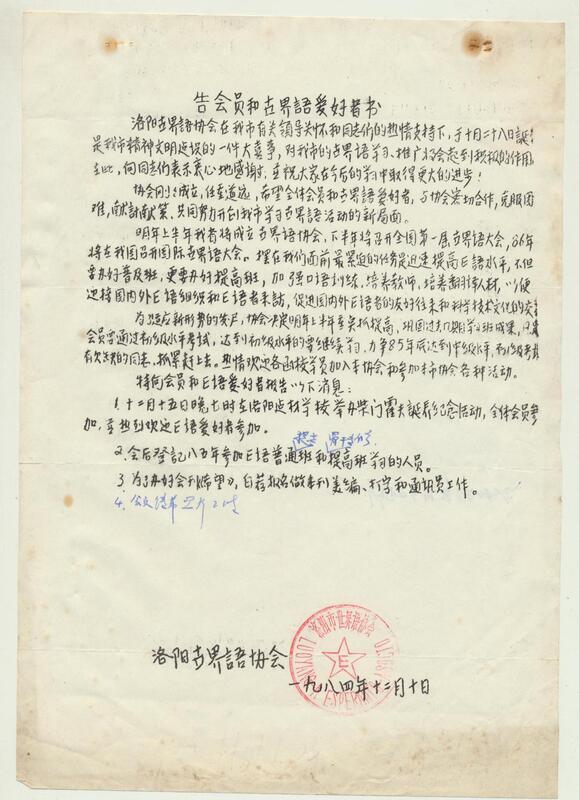 告会员和古界語爱好者书
洛阳古界語协会在我市有关領导关怀和同志们的热情支持下，于十月二十八日誕生
是我市精神文明建设的一件大喜事，对我市的古界语学习、推广将会起到积极的作用
在此，向同志们表示衷心地感謝！並祝大家在今后的学习中取得更大的进步！
协会刚刚成立，任重道远，希望全体会员和古界語爱好者，与协会密切合作，克服困
难，献計献策，共同努力开创我市学习古界語活动的新局面。
明年上半年我省将成立古界语协会，下半年将召开全国第一届古界語大会，86年
将在我国召开国际古界语大会。摆在我们面前最紧迫的任务是迅速提高E語水平，不但
要办好普及班，更要办好提高班，加强口语训练，培养教师，培养翻译人材，以便
迎接国内外E語組织和E語者来訪，促进国内外E語者的友好往来和科学技术文化的交
为适应新形势的发展，协会决定明年上半年重点抓提高，巩固过去几期学习班成果，
会员普通过初级水平考试，达到初级水平的要继续学习，力争85年底达到中级水平，初级考
有欠缺的同志，抓緊赶上去。热情欢迎各函授学员加入本协会和参加本市协会各种活动。
特向会员和E语爱好者报告以下消息：
1.十二月十五日晚七时在洛阳建材学校举办柴门霍夫誕辰纪念活动，全体会员参
加，並热烈欢迎E语爱好者参加。
2.会后登記八五年参加E语普通班和提高班学习的人员。
3.为了办好会刊《希望》，自荐报名做本刊美编、打字和通讯员工作。
4.
洛阳古界語协会
一九八四年十二月十日
洛阳市世界语协会
LUOYANG
E
ESPER